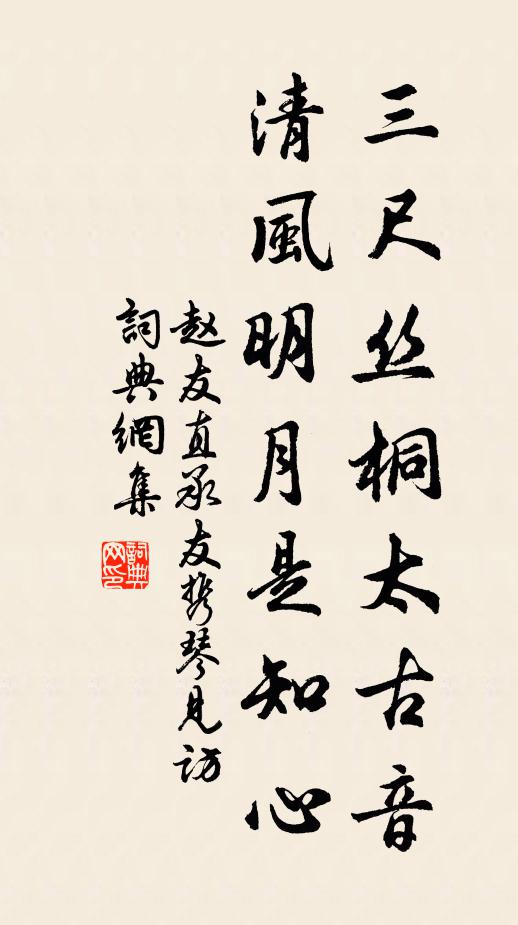 三尺丝桐太古音
清風明月是知心
赵友直承友携琴見访
詞典網集
詞典网印